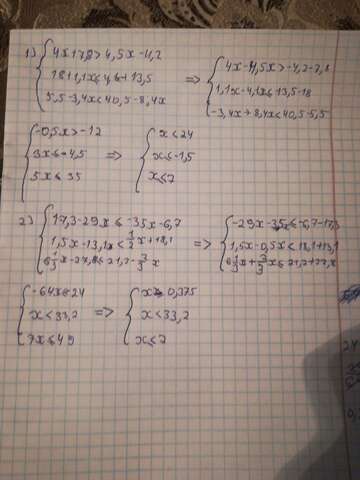 1) 4x+7,8>4,5x-4,2
18+1,1x<4,1x+13,5
5,5-3,4x<40,5-8,4x
=> 4x-4,5x>-4,2-7,8
1,1x-4,1x≤13,5-18
-3,4x+8,4x<40,5-5,5
-0,5x>-12
3x≤-4,5
5x≤35
=> x<24
x≤-1,5
x≤7
2) 17,3-29x≤-35x-6,7
1,5x-13,1x<1/2x+18,1
=> -29x-35≤-6,7-17,3
1,5x-0,5x<18,1+13,1
-64x≤24
x<33,2
7x≤49
=> x≥0,375
x<33,2
x≤7